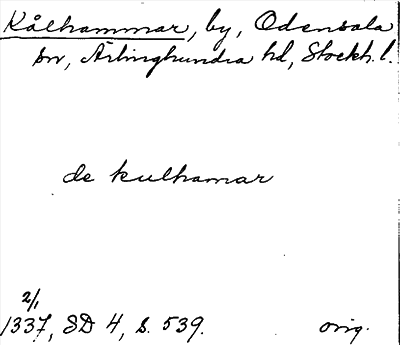 Kålhammar, by, Odensala
sn, Ärlinghundra hd, Stockh. l.
de kulhamar
2/1
1337, SD 4, s. 539. orig.